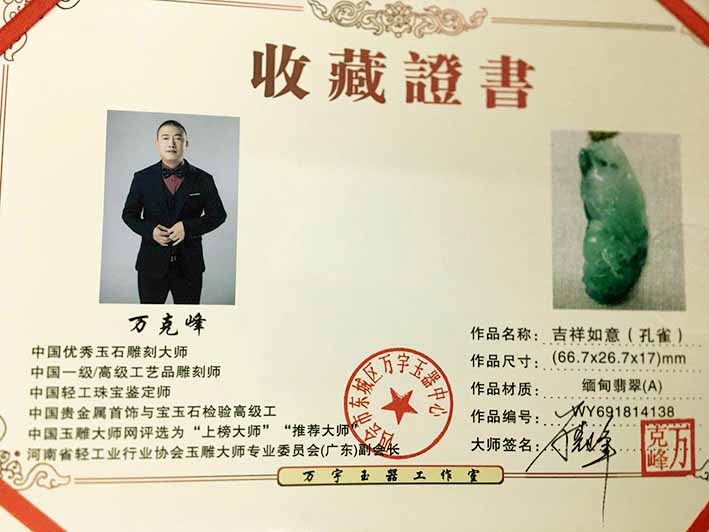 收藏證書
万克峰
中国优秀玉石雕刻大师
中国一级/高级工艺品雕刻师
中国轻工珠宝鉴定师
中国贵金属首饰与宝玉石检验高级工
中国玉雕大师网评选为“上榜大师”“推荐大师”
河南省轻工业行业协会玉雕大师专业委员会(广东)副会长
四会市东城区万宇玉器中心
作品名称：吉祥如意（孔雀）
作品尺寸：(66.7x26.7x17)mm
作品材质：缅甸翡翠(A)
作品编号：WY691814138
大师签名：万克峰
万克峰
万宇玉器工作室